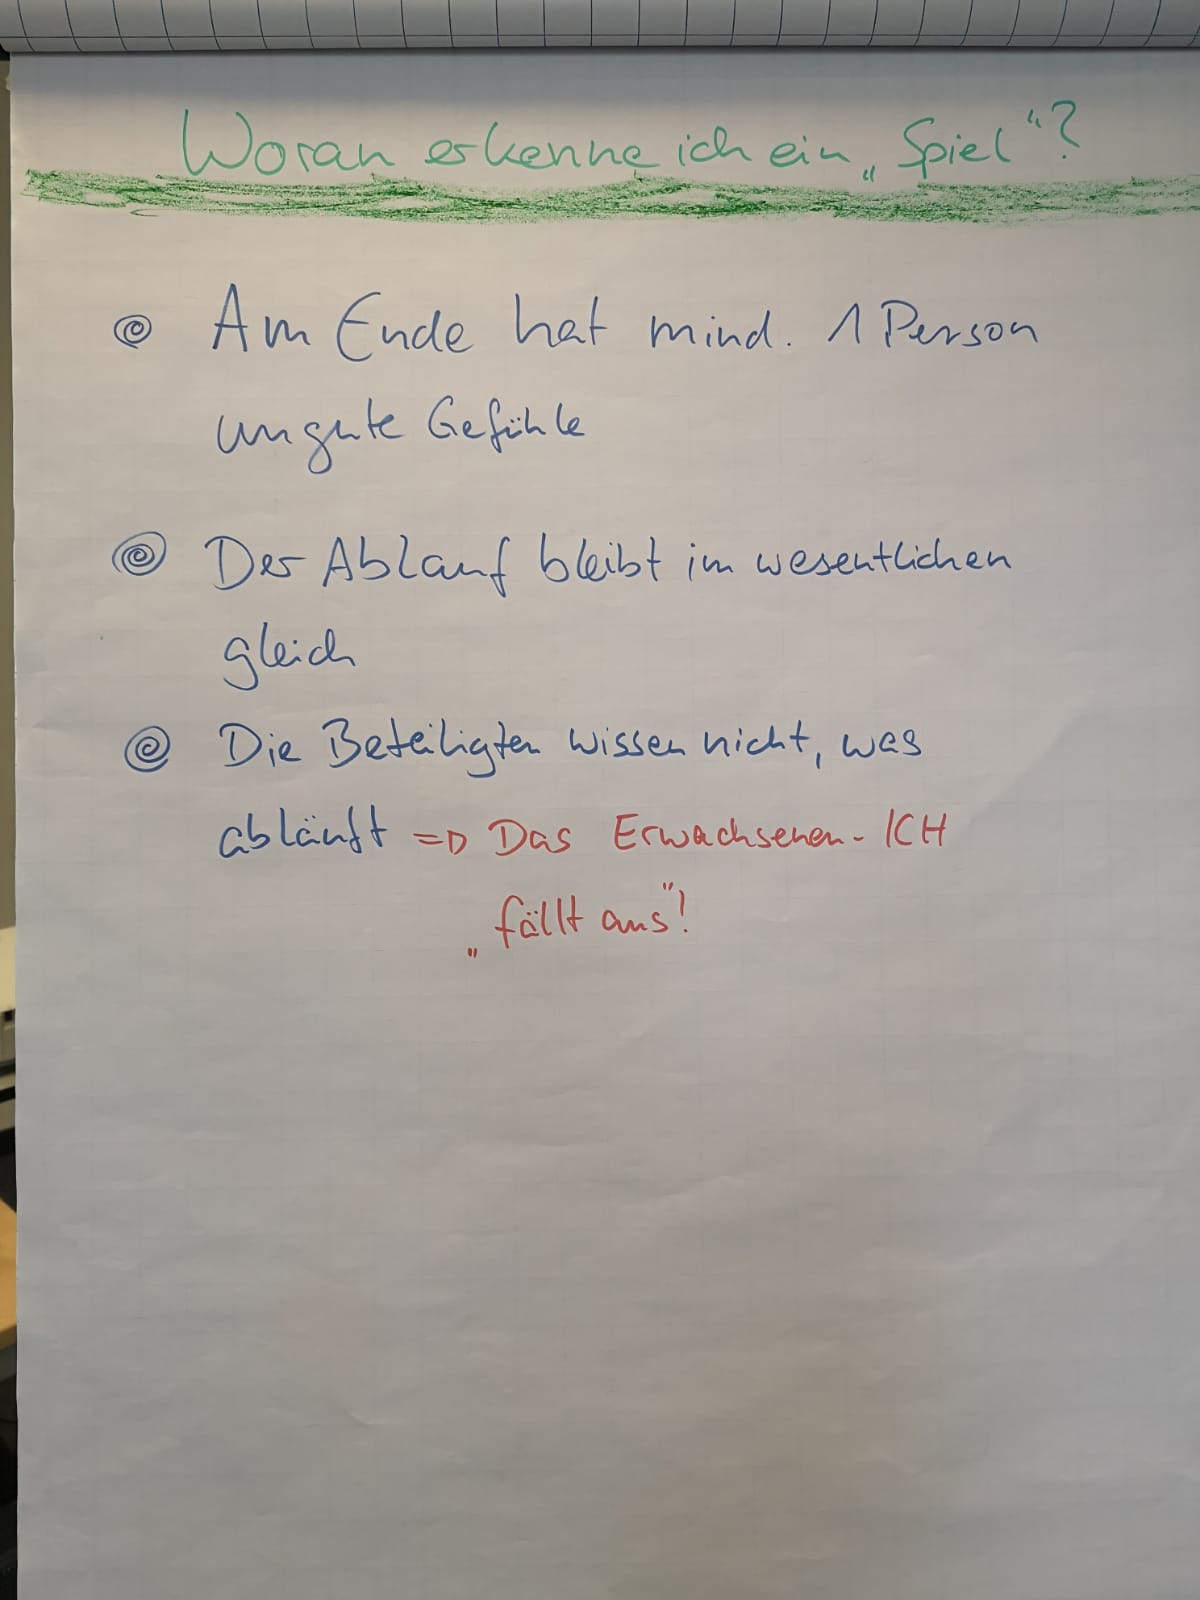 Woran erkenne ich ein „Spiel“?
Am Ende hat mind. 1 Person
ungute Gefühle
Der Ablauf bleibt im wesentlichen
gleich
Die Beteiligten wissen nicht, was
abläuft => Das Erwachsenen-ICH
„fällt aus“!